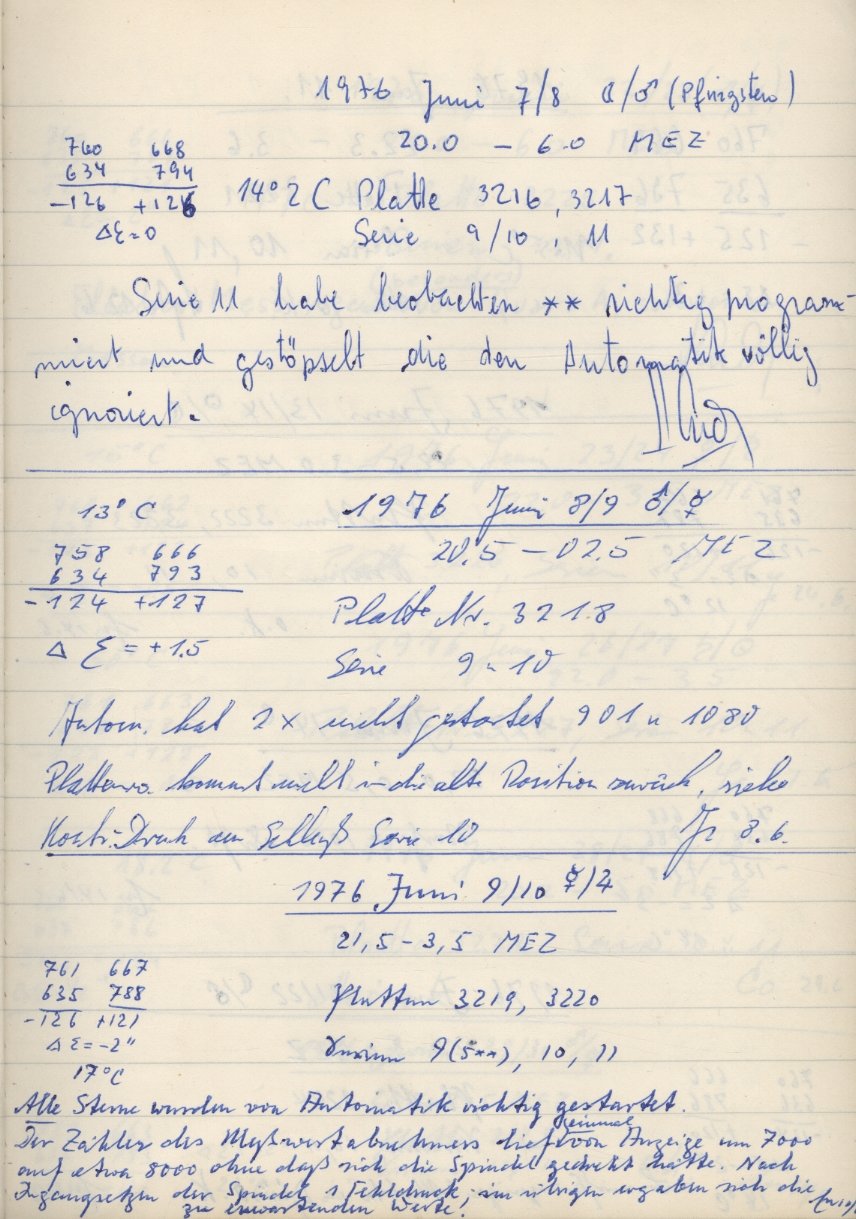 1976 Juni 7/8 ☾/♂ (Pfingsten)
20.0 – 6.0 MEZ
760 668
634 794
-126 +126
Δε=0
14°2 C Platte 3216, 3217
Serie 9/10, 11
Serie 11 habe beobachten ** richtig program-
miert und gestöpselt die den Automatik völlig
ignoriert.
13°C
1976 Juni 8/9 ♂/☿
20.5 – 02.5 MEZ
758 666
634 793
-124 +127
Δ ε = +1.5
Platte Nr. 3218
Serie 9 u 10
Autom. hat 2 x nicht gestartet 901 u 1080
kommt nicht in die alte Position zurück, siehe
Kontr.-Druck am Schluß Serie 10
8.6.
1976 Juni 9/10 ☿/♃
21,5 – 3,5 MEZ
761 667
635 788
-126 +121
Δ ε = -2"
17°C
Platten 3219, 3220
Serien 9(5**), 10, 11
Alle Sterne wurden von Automatik richtig gestartet.
Der Zähler des Meßwertabnehmers lief einmal von Anzeige um 7000
auf etwa 8000 ohne daß sich die Spindel gedreht hätte. Nach
Ingangsetzen der Spindel 1 Fehldruck, im übrigen ergaben sich die
zu erwartenden Werte!